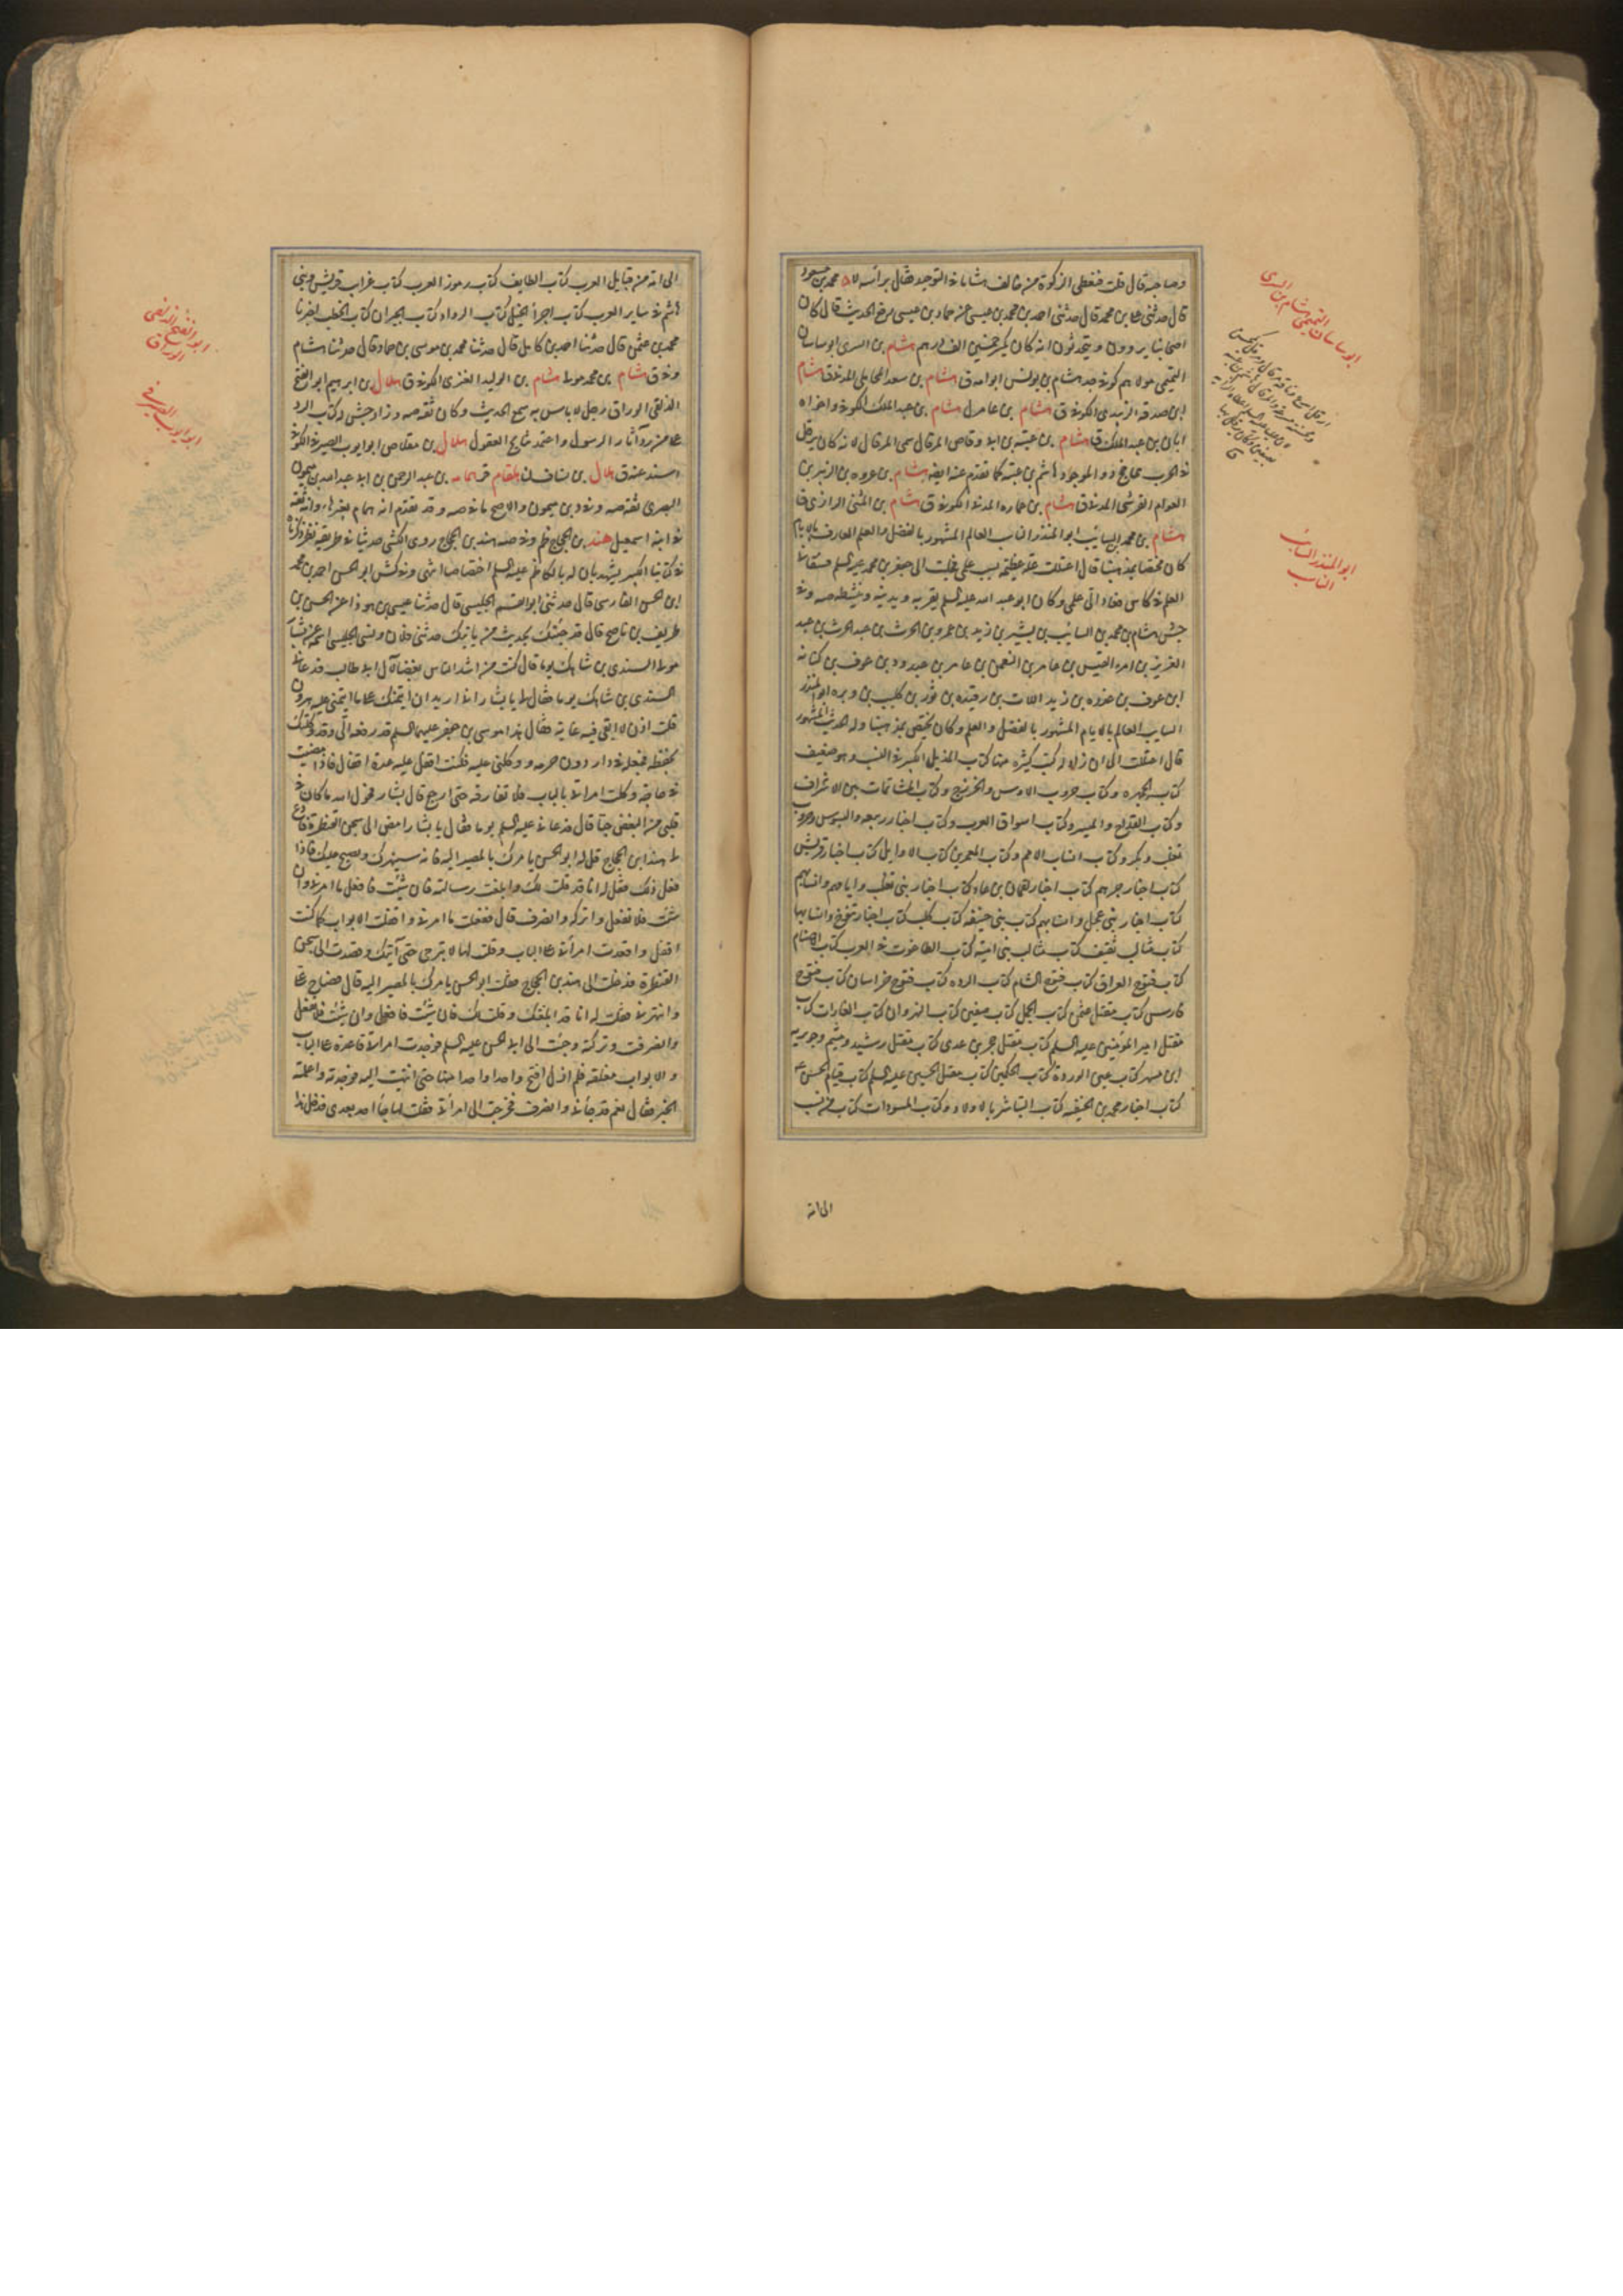 وصاحبه قال قلت فنعطى الزكوة من خالف هشاما فى التوحيد فقال برأسه لا محمد بن مسعود
قال حدثنى على بن محمد قال حدثنى احمد بن محمد بن عيسى عن حماد بن عيسى الحديث قال كان
اصحابنا يروون ويتحدثون انه كان يكسر خمسين الف درهم هشام بن السرى ابو ساسان
التميمى مولاهم كوفى هشام بن يونس ابو احمد ق هشام بن سعد المحاملى المدنى ق هشام
ابن صدقه الزبيدى الكوفى ق هشام بن عامر ل هشام بن عبد الملك الكوفى واخواه
هشام بن عتبه بن ابى وقاص المرقال سمى المرقال لانه كان يرقل
فى الحرب هاشم بن عتبه كما تقدم هشام بن عروه بن الزبير بن
العوام القرشى المدنى ق هشام بن عماره المدنى الكوفى ق هشام بن المثنى الرازى ق
هشام بن محمد بن السائب ابو المنذر الناسب العالم المشهور بالفضل والعلم العارف بالايام
كان مختصا بمذهبنا قال اعتللت علة عظيمة نسيت علمى فجئت الى جعفر بن محمد عليه السلم فسقانى
العلم فى كاس فعاد الى علمى وكان ابو عبد الله عليه السلم يقربه ويدنيه وينشطه صه وفى
جش هشام بن محمد بن السايب بن بشير بن زيد بن عمرو بن الحرث بن عبد الحرث بن عبد
العزيز بن امرء القيس بن عامر بن النعمان بن عامر بن عبدود بن عوف بن كنانه
ابن عوف بن عذره بن زيد اللات بن رفيده بن ثور بن كلب بن وبره ابو المنذر
السايب العالم بالايام المشهور بالفضل والعلم وكان يختص بمذهبنا وله الحديث المشهور
قال اعتللت الى ان زاد له كتب كثيره منها كتاب المذيل الكبير فى النسب وهو ضعيف
كتاب الجمهره وكتاب حروب الاوس والخزرج وكتاب المشاتمات بين الاشراف
وكتاب القداح والميسر وكتاب اسواق العرب وكتاب اخبار ربيعه والبسوس وحروب
تغلب وبكر وكتاب انساب الامم وكتاب المعمرين كتاب الاوايل كتاب اخبار قريش
كتاب اخبار جرهم كتاب اخبار لقمان بن عاد كتاب اخبار بنى تغلب وايامهم وانسابهم
كتاب اخبار بنى عجل وانسابهم كتاب بنى حنيفه كتاب كلب كتاب اخبار تنوخ وانسابها
كتاب مثالب ثقيف كتاب مثالب بنى اميه كتاب الطاعون فى العرب كتاب الاصنام
كتاب فتوح العراق كتاب فتوح الشام كتاب الرده كتاب فتوح خراسان كتاب فتوح
فارس كتاب مقتل عثمن كتاب الجمل كتاب صفين كتاب النهروان كتاب الغارات كتاب
مقتل امير المؤمنين عليه السلم كتاب مقتل حجر بن عدى كتاب مقتل رشيد وميثم وجويريه
ابن مسهر كتاب عين الورده كتاب الحكمين كتاب مقتل الحسين عليه السلم كتاب قيام الحسن ع
كتاب اخبار محمد بن الحنفيه كتاب التباشر بالاولاد وكتاب المسودات كتاب من نسب
الى امه
ابو ساسان التميمى هشام بن السرى
ابو المنذر الناسب
الى امه من قبايل العرب كتاب الطايف كتاب رموز العرب كتاب غراب قريش وبنى
هاشم فى ساير العرب كتاب اجراء الخيل كتاب الرواد كتاب الجيران كتاب الخطب اخبرنا
محمد بن عثمن قال حدثنا احمد بن كامل قال حدثنا محمد بن موسى بن حماد قال حدثنا هشام
وفى ق هشام بن محمد مولى هشام بن الوليد العنزى الكوفى ق هلال بن ابرهيم ابو الفتح
الدلفى الوراق رجل لا باس به سمع الحديث وكان ثقه صه وزاد جش له كتاب الرد
على من رد آثار الرسول واعتمد نتايج العقول هلال بن مقلاص ابو ايوب الصيرفى الكوفى
اسند عنه ق هلال بن يساف ل هلقام همام بن عبد الرحمن بن ابى عبد الله بن ميمون
البصرى ثقه صه وفى د بن ميمون والاصح ما فى صه وقد تقدم انه همام بغيرها وانه ثقه
فى ابنه اسمعيل هند بن الحجاج ظم وفى صه هند بن الحجاج روى الكشى حديثا فى طريقه نظر ذكرناه
فى كتابنا الكبير يشهد بان له بالكاظم عليه السلم اختصاصا انتهى وفى كش ابو الحسن احمد بن محمد
ابن الحسن الفارسى قال حدثنى ابو القسم الحليسى قال حدثنا عيسى بن هوذا عن الحسن بن
ظريف بن ناصح قال قد جئتك بحديث من ياتيك حدثنى فلان ونسى الحليسى اسمه عن بشار
مولى السندى بن شاهك قال كنت من اشد الناس بغضا لآل ابى طالب فدعانى
السندى بن شاهك يوما فقال لى يا بشار انى اريد ان ائتمنك على ما ائتمننى عليه هرون
قلت اذن لا ابقى فيه غاية فقال هذا موسى بن جعفر عليهما السلم قد دفعه الى وقد وكلتك
بحفظه فجعله فى دار دون حرمه ووكلنى عليه فكنت اقفل عليه عدة اقفال فاذا مضيت
فى حاجة وكلت امرأتى بالباب فلا تفارقه حتى ارجع قال بشار فحول الله ما كان فى
قلبى من البغض حبا قال فدعانى عليه السلم يوما فقال يا بشار امض الى سجن القنطرة فادع
لى هند بن الحجاج وقل له ابو الحسن يامرك بالمصير اليه فانه سينهرك ويصيح عليك فاذا
فعل ذلك فقل له انا قد قلت لك وابلغت رسالته فان شئت فافعل ما امرنى وان
شئت فلا تفعل واتركه وانصرف قال ففعلت ما امرنى واقفلت الابواب كما كنت
اقفل واقعدت امرأتى على الباب وقلت لها لا تبرحى حتى آتيك وقصدت الى سجن
القنطرة فدخلت الى هند بن الحجاج فقلت ابو الحسن يامرك بالمصير اليه قال فصاح على
وانتهرنى فقلت له انا قد ابلغتك وقلت لك فان شئت فافعل وان شئت فلا تفعل
وانصرفت وتركته وجئت الى ابى الحسن عليه السلم فوجدت امرأتى قاعدة على الباب
والابواب مغلقه فلم ازل افتح واحدا واحدا منها حتى انتهيت اليه فوجدته واعلمته
الخبر فقال نعم قد جاءنى وانصرف فخرجت الى امرأتى فقلت لها جاء احد بعدى فدخل هذا
ابو الفتح الدلفى الوراق
ابو ايوب الصيرفى